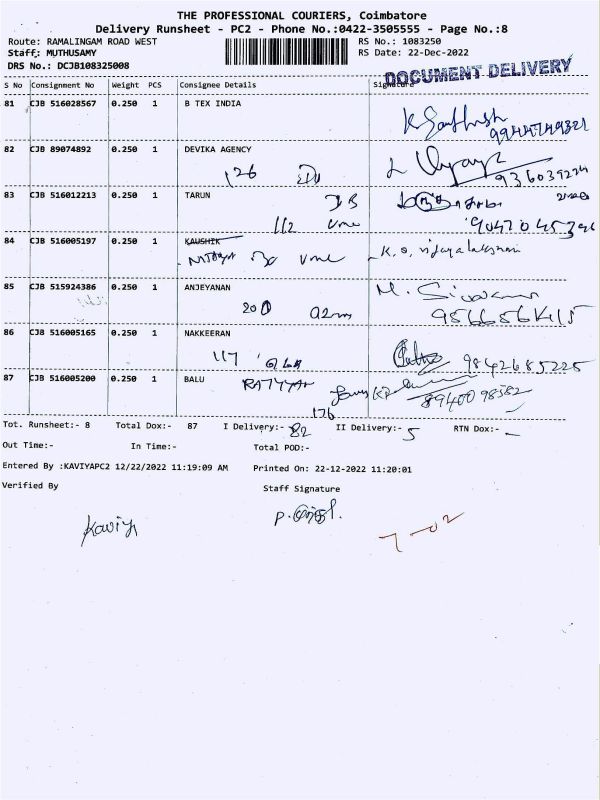 THE PROFESSIONAL COURIERS, Coimbatore
Delivery Runsheet - PC2 - Phone No.:0422-3505555 - Page No.:8
Route: RAMALINGAM ROAD WEST RS No.: 1083250
Staff: MUTHUSAMY RS Date: 22-Dec-2022
DRS No.: DCJB108325008
DOCUMENT DELIVERY
S No Consignment No Weight PCS Consignee Details Signature
81 CJB 516028567 0.250 1 B TEX INDIA
82 CJB 89074892 0.250 1 DEVIKA AGENCY
126
83 CJB 516012213 0.250 1 TARUN
112
84 CJB 516005197 0.250 1 KAUSHIK
K. S. vijayalakshmi
85 CJB 515924386 0.250 1 ANJEYANAN
200
86 CJB 516005165 0.250 1 NAKKEERAN
117 9842685225
87 CJB 516005200 0.250 1 BALU
8940098582
176
Tot. Runsheet:- 8 Total Dox:- 87 I Delivery:- 82 II Delivery:- 5 RTN Dox:- -
Out Time:- In Time:- Total POD:-
Entered By :KAVIYAPC2 12/22/2022 11:19:09 AM Printed On: 22-12-2022 11:20:01
Verified By Staff Signature
Kaviya